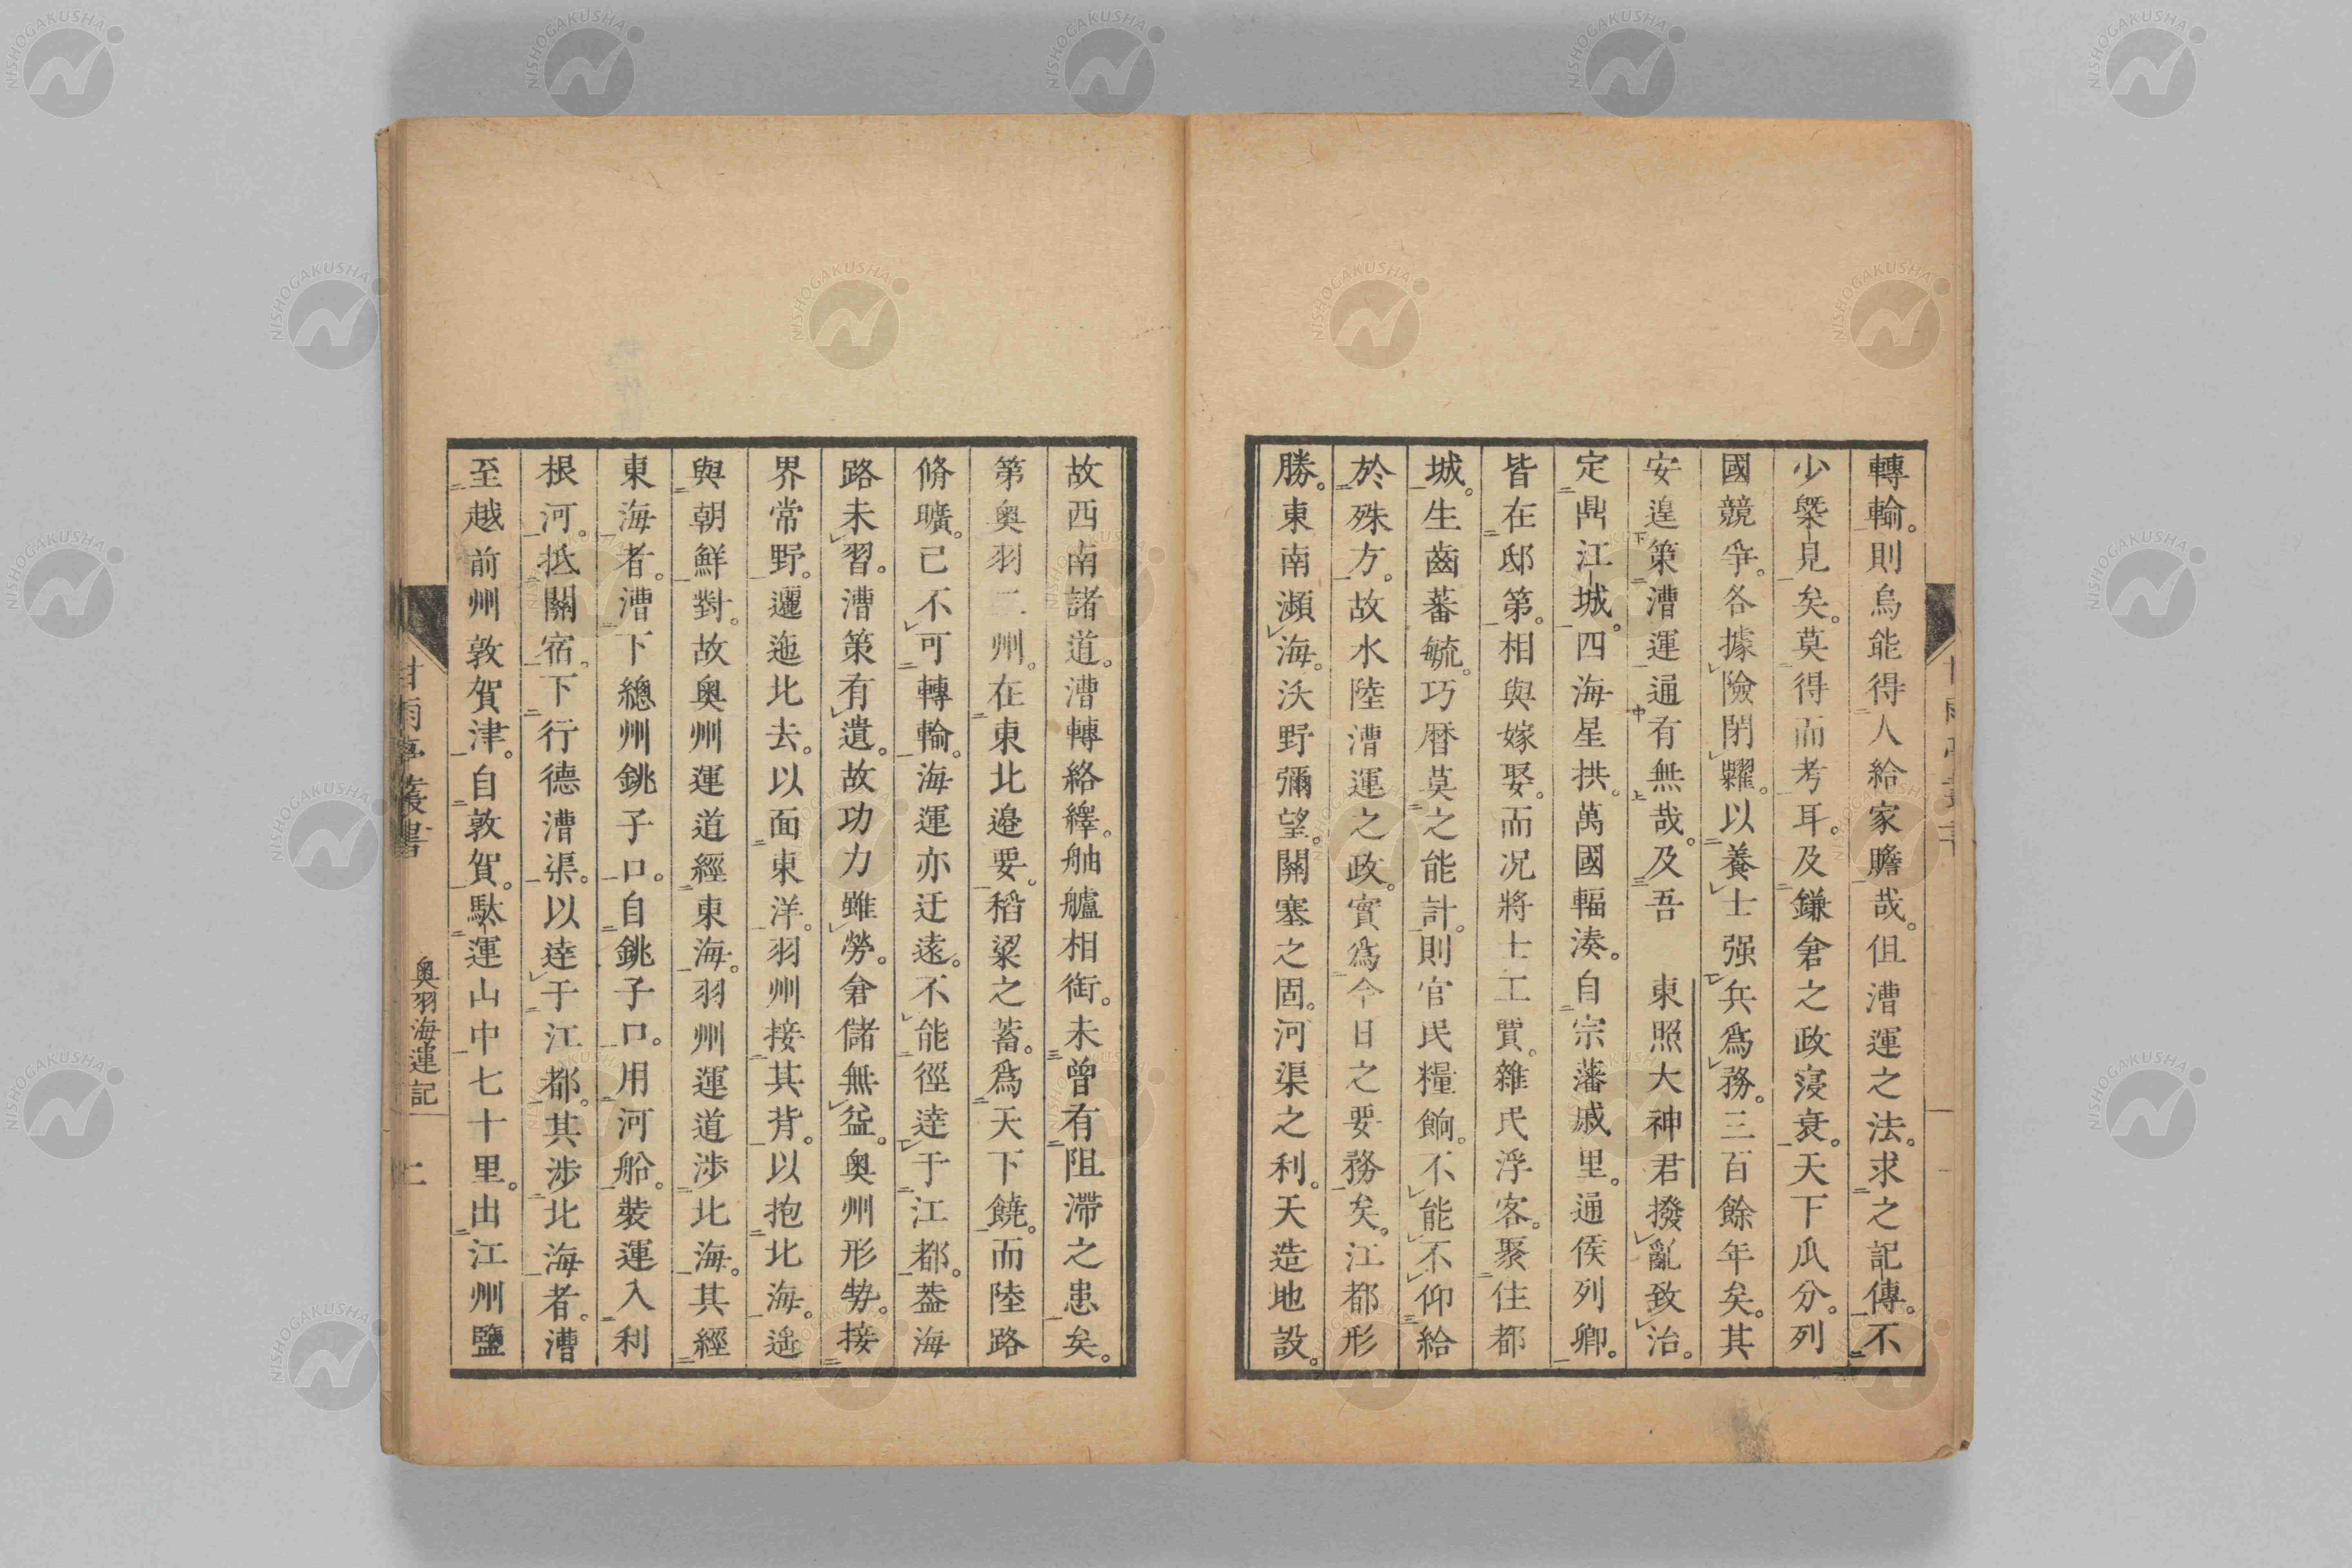 轉輸。則烏能得人給家贍哉。但漕運之法。求之記傳。不
少槩見矣。莫得而考耳。及鎌倉之政寖衰。天下瓜分。列
國競爭。各據險閉糶。以養士强兵爲務。三百餘年矣。其
安遑策漕運通有無哉。及吾　東照大神君撥亂致治。
定鼎江城。四海星拱。萬國輻湊。自宗藩戚里。通侯列卿。
皆在邸第。相與嫁娶。而况將士工賈。雜民浮客。聚住都
城。生齒蕃毓。巧曆莫之能計。則官民糧餉。不能不仰給
於殊方。故水陸漕運之政。實爲今日之要務矣。江都形
勝。東南瀕海。沃野彌望。關塞之固。河渠之利。天造地設。
故西南諸道。漕轉絡繹。舳艫相銜。未曾有阻滯之患矣。
第奧羽二州。在東北邊要。稻粱之蓄。爲天下饒。而陸路
脩曠。已不可轉輸。海運亦迂遠。不能徑達于江都。葢海
路未習。漕策有遺。故功力雖勞。倉儲無益。奧州形勢。接
界常野。邐迤北去。以面東洋。羽州接其背。以抱北海。遙
與朝鮮對。故奧州運道經東海。羽州運道涉北海。其經
東海者。漕下總州銚子口。自銚子口。用河船。裝運入利
根河。抵關宿。下行德漕渠。以達于江都。其涉北海者。漕
至越前州敦賀津。自敦賀。馱運山中七十里。出江州鹽
甘雨亭叢書
奧羽海運記
二
NISHOGAKUSHA